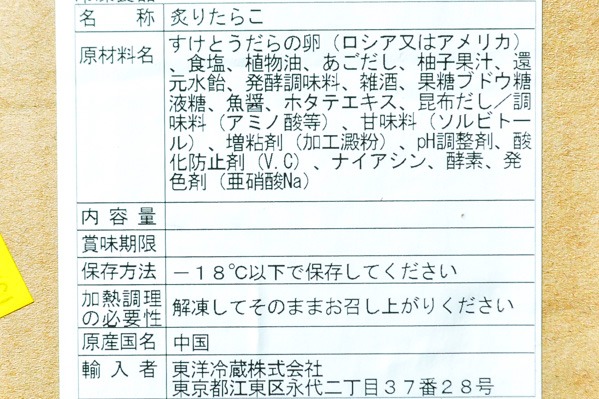 名称 炙りたらこ
原材料名 すけとうだらの卵（ロシア又はアメリカ）
、食塩、植物油、あごだし、柚子果汁、還
元水飴、発酵調味料、雑酒、果糖ブドウ糖
液糖、魚醤、ホタテエキス、昆布だし／調
味料（アミノ酸等）、甘味料（ソルビトー
ル）、増粘剤（加工澱粉）、pH調整剤、酸
化防止剤（V.C）、ナイアシン、酵素、発
色剤（亜硝酸Na）
内容量
賞味期限
保存方法 −18℃以下で保存してください
加熱調理
の必要性 解凍してそのままお召し上がりください
原産国名 中国
輸入者 東洋冷蔵株式会社
東京都江東区永代二丁目37番28号